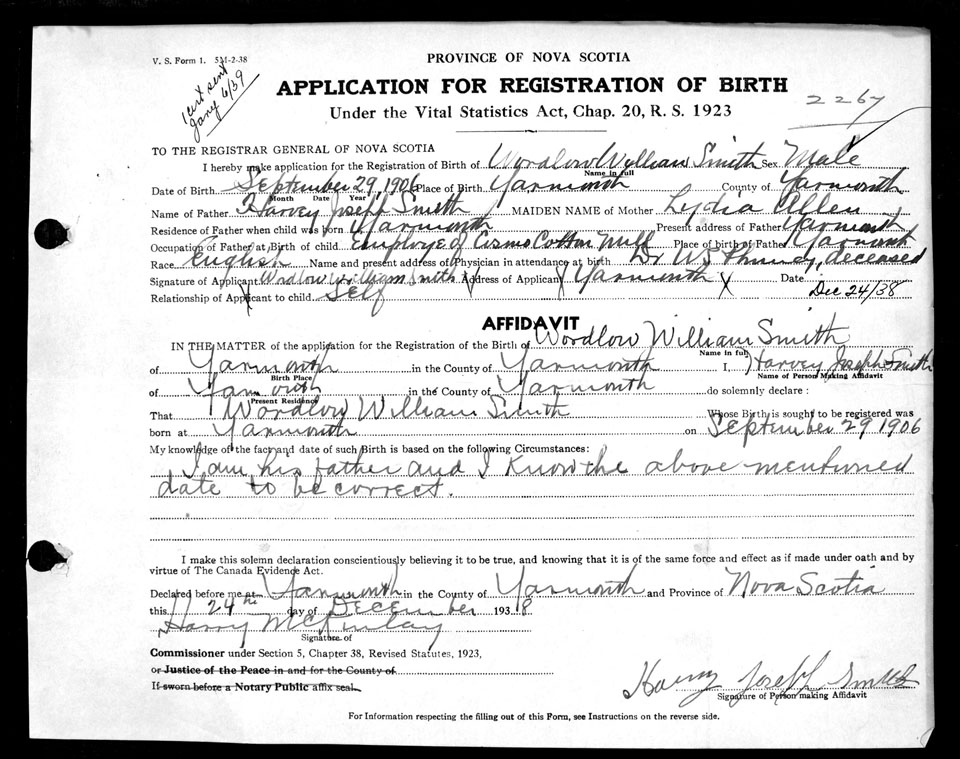 V. S. Form 1. 5M-2-38
PROVINCE OF NOVA SCOTIA
1 cert sent
Jany 6/39
APPLICATION FOR REGISTRATION OF BIRTH
Under the Vital Statistics Act, Chap. 20, R. S. 1923
2267
TO THE REGISTRAR GENERAL OF NOVA SCOTIA
I hereby make application for the Registration of Birth of Wordlow William Smith Sex Male
Name in full
Date of Birth September 29, 1906 Place of Birth Yarmouth County of Yarmouth
Month Date Year
Name of Father Harvey Joseph Smith MAIDEN NAME of Mother Lydia Allen
Residence of Father when child was born Yarmouth Present address of Father Yarmouth
Occupation of Father at Birth of child Employe of Cosmo Cotton Mill Place of birth of Father Yarmouth
Race English Name and present address of Physician in attendance at birth Dr W deceased
Signature of Applicant Wordlow William Smith Address of Applicant Yarmouth X Date Dec 24/38
Relationship of Applicant to child Self
AFFIDAVIT
IN THE MATTER of the application for the Registration of the Birth of Wordlow William Smith
Name in full
of Yarmouth in the County of Yarmouth I, Harvey Joseph Smith
Birth Place Name of Person Making Affidavit
of Yarmouth in the County of Yarmouth do solemnly declare :
Present Residence
That Wordlow William Smith Whose Birth is sought to be registered was
born at Yarmouth on September 29 1906
My knowledge of the fact and date of such Birth is based on the following Circumstances:
I am his father and I know the above mentioned
date to be correct.
I make this solemn declaration conscientiously believing it to be true, and knowing that it is of the same force and effect as if made under oath and by
virtue of The Canada Evidence Act.
Declared before me at Yarmouth in the County of Yarmouth and Province of Nova Scotia
this 24th day of December 1938
Harry McKinlay
Signature of
Commissioner under Section 5, Chapter 38, Revised Statutes, 1923,
or Justice of the Peace in and for the County of
If sworn before a Notary Public affix seal.
Harvey Joseph Smith
Signature of Person making Affidavit
For Information respecting the filling out of this Form, see Instructions on the reverse side.